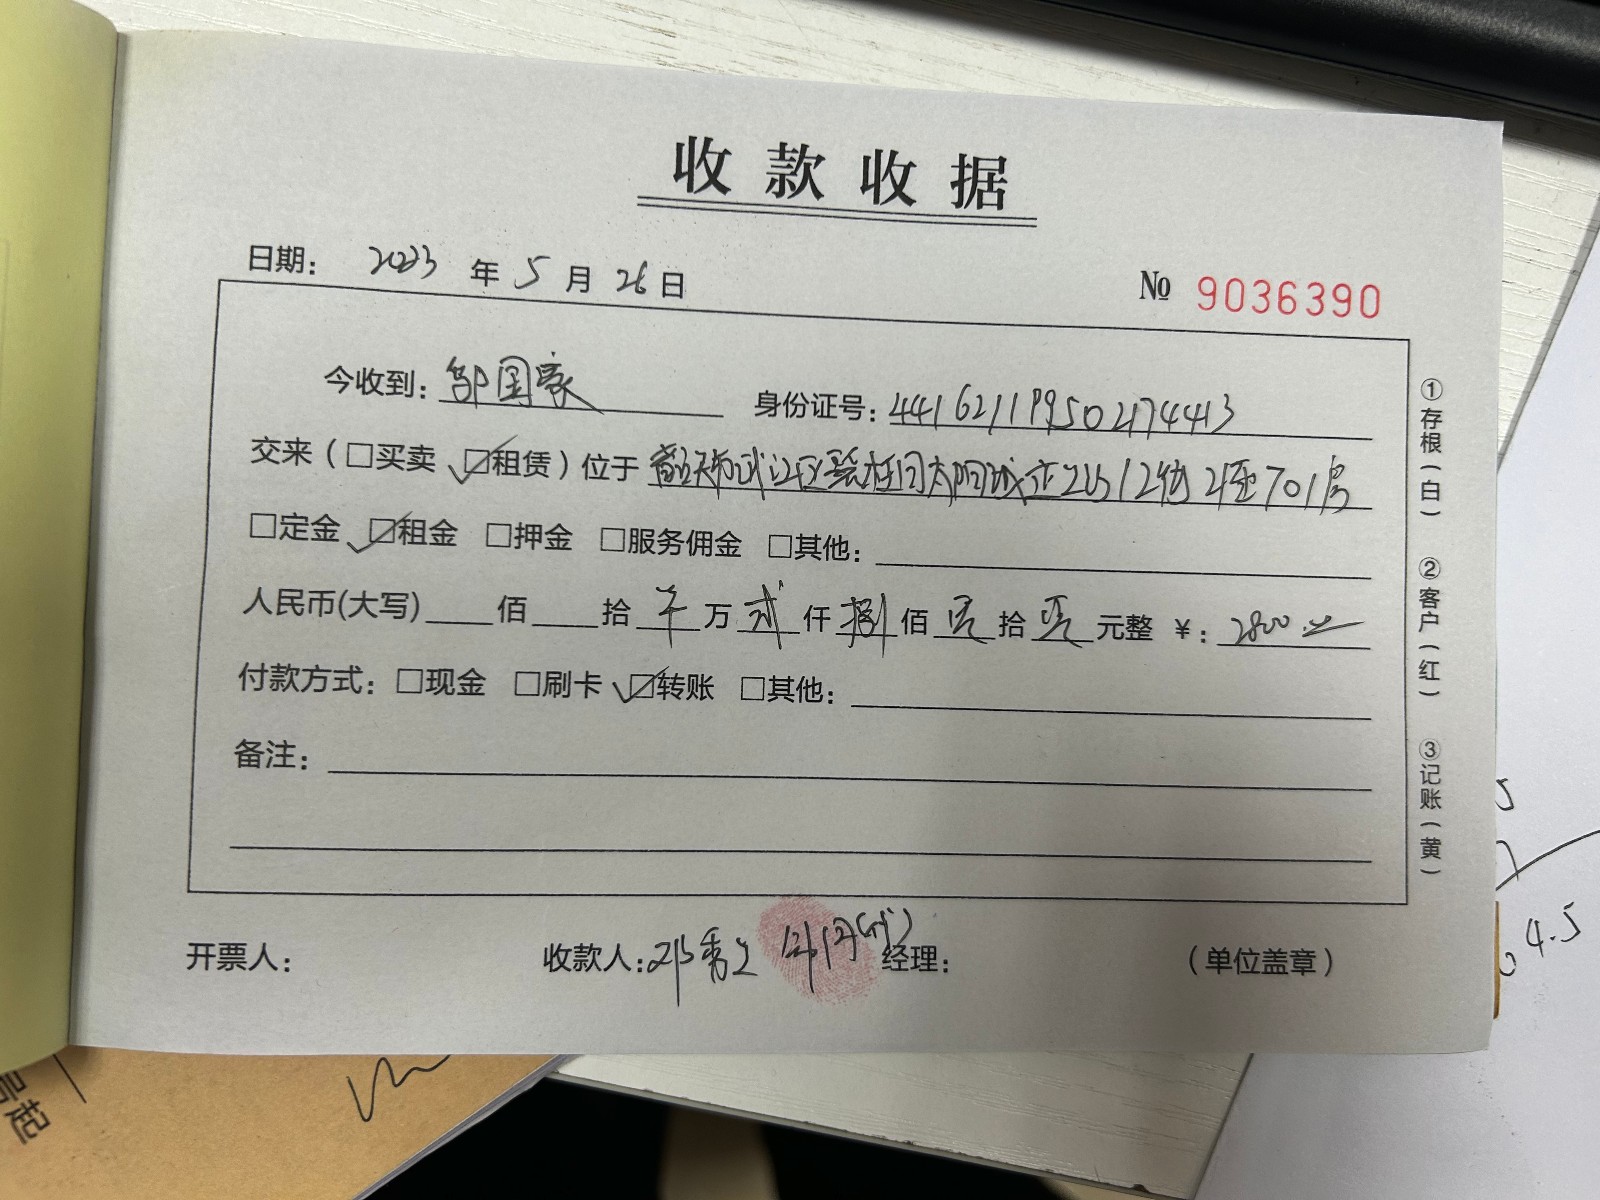 收款收据
日期： 2023 年 5 月 26 日
№ 9036390
今收到：邹国家 身份证号：441621199502174413
交来（□买卖 ☑租赁）位于 韶关市武江区碧桂园太阳城 12街2座701房
□定金 ☑租金 □押金 □服务佣金 □其他：
人民币(大写) 佰 拾 万 贰 仟 捌 佰 零 拾 零 元整 ￥：2800.00
付款方式：□现金 □刷卡 ☑转账 □其他：
备注：
开票人： 收款人： (代) 经理： （单位盖章）
①存根（白） ②客户（红） ③记账（黄）
号起
5
4.5